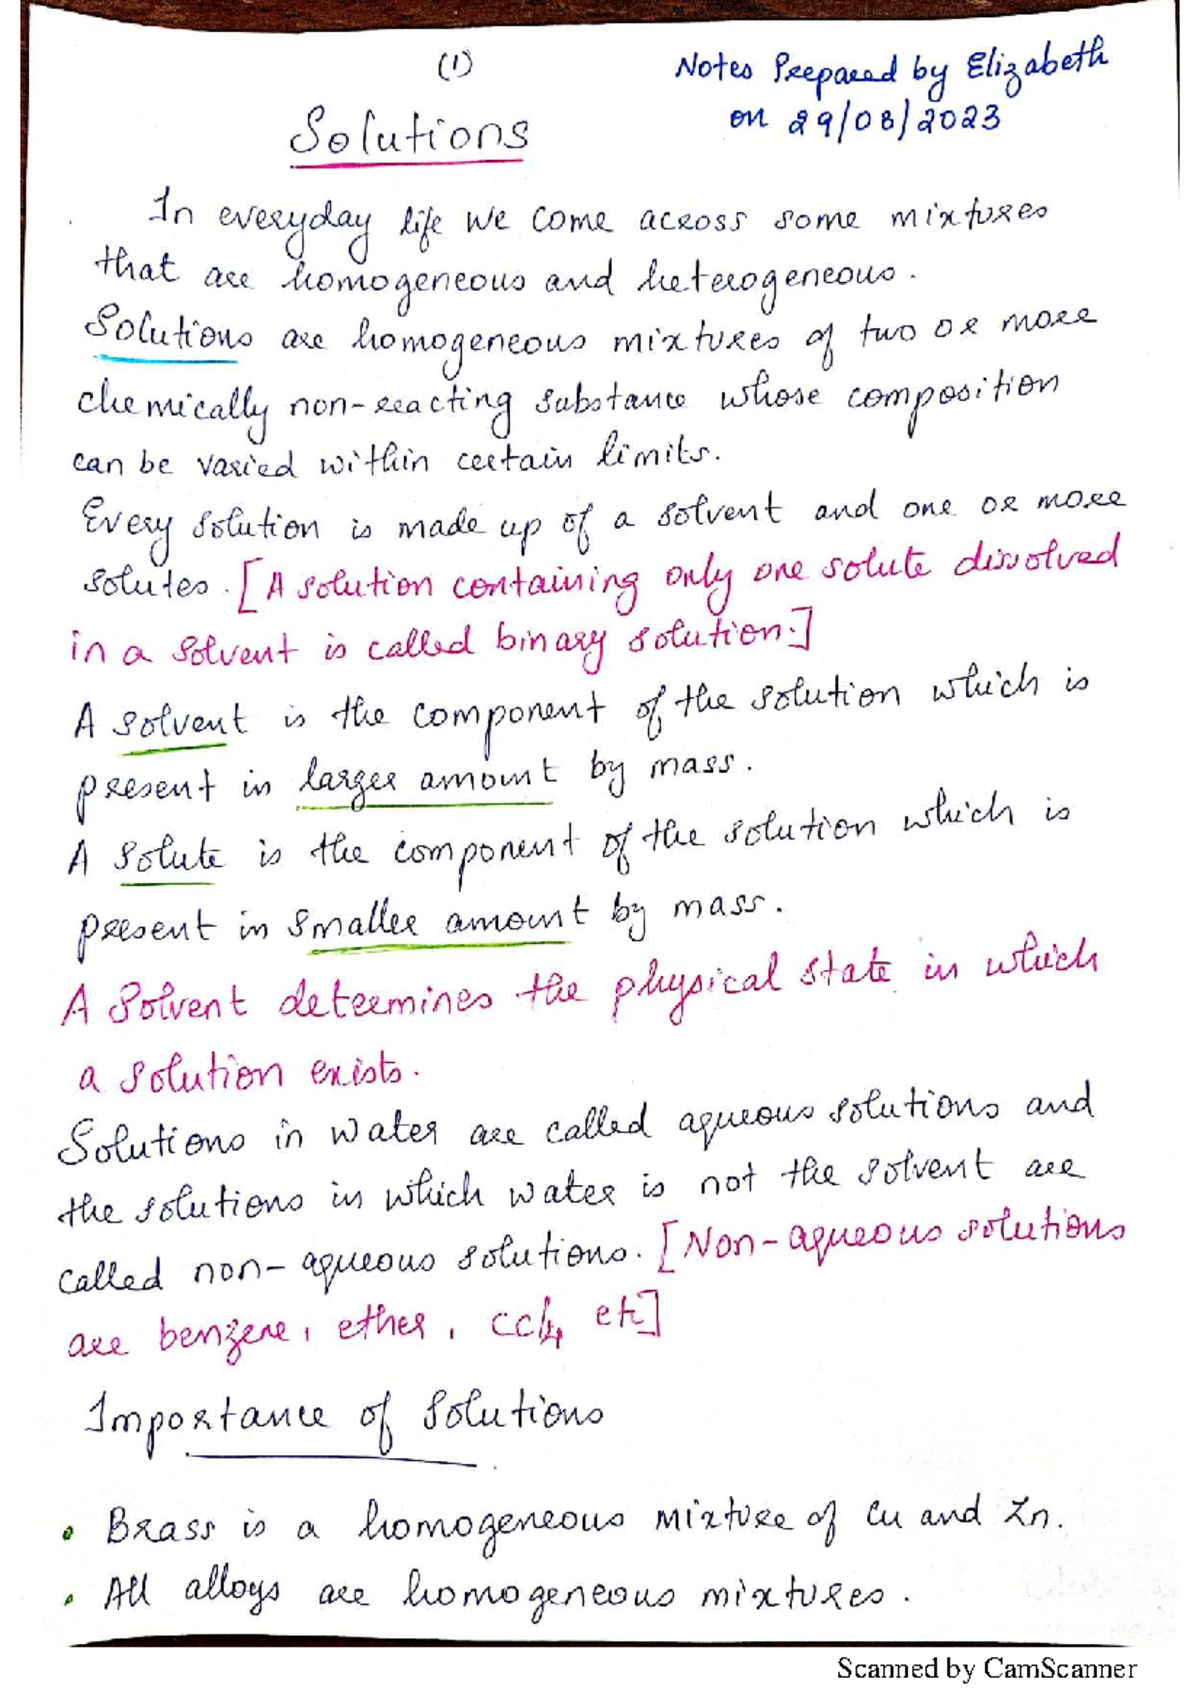 (1)
Notes Prepared by Elizabeth
on 29/08/2023
Solutions
In everyday life we come across some mixtures
that are homogeneous and heterogeneous.
Solutions are homogeneous mixtures of two or more
chemically non-reacting substance whose composition
can be varied within certain limits.
Every solution is made up of a solvent and one or more
solutes. [A solution containing only one solute dissolved
in a solvent is called binary solution.]
A solvent is the component of the solution which is
present in larger amount by mass.
A solute is the component of the solution which is
present in smaller amount by mass.
A solvent determines the physical state in which
a solution exists.
Solutions in water are called aqueous solutions and
the solutions in which water is not the solvent are
called non-aqueous solutions. [Non-aqueous solutions
are benzene, ether, ccl4 etc]
Importance of Solutions
• Brass is a homogeneous mixture of Cu and Zn.
• All alloys are homogeneous mixtures.
Scanned by CamScanner